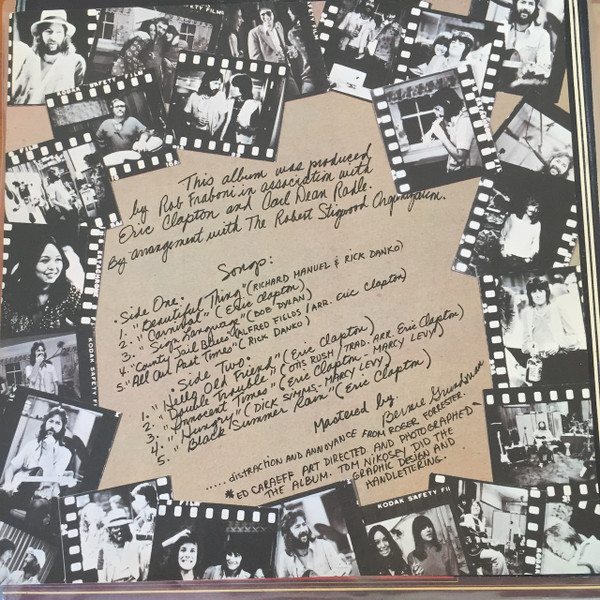 KODAK SAFETY FILM
SAFETY FILM
This album was produced
by Rob Fraboni in association with
Eric Clapton and Carl Dean Radle.
By arrangement with The Robert Stigwood Organization.
Songs:
Side One:
1. "Beautiful Thing" (RICHARD MANUEL & RICK DANKO)
2. "Carnival" (Eric Clapton)
3. "Sign Language" (BOB DYLAN)
4. "County Jail Blues" (ALFRED FIELDS / ARR. Eric Clapton)
5. "All Our Past Times" (RICK DANKO)
Side Two:
1. "Hello Old Friend" (Eric Clapton)
2. "Double Trouble" (OTIS RUSH / TRAD. ARR. Eric Clapton)
3. "Innocent Times" (Eric Clapton - MARCY LEVY)
4. "Hungry" (DICK SIMMS - MARCY LEVY)
5. "Black Summer Rain" (Eric Clapton)
Mastered by:
Bernie Grundman
..... DISTRACTION AND ANNOYANCE FROM ROGER FORRESTER.
*ED CARAEFF ART DIRECTED AND PHOTOGRAPHED
THE ALBUM. TOM NIKOSEY DID THE
GRAPHIC DESIGN AND
HANDLETTERING.
KODAK SAFETY F
KODAK SAFETY FIL